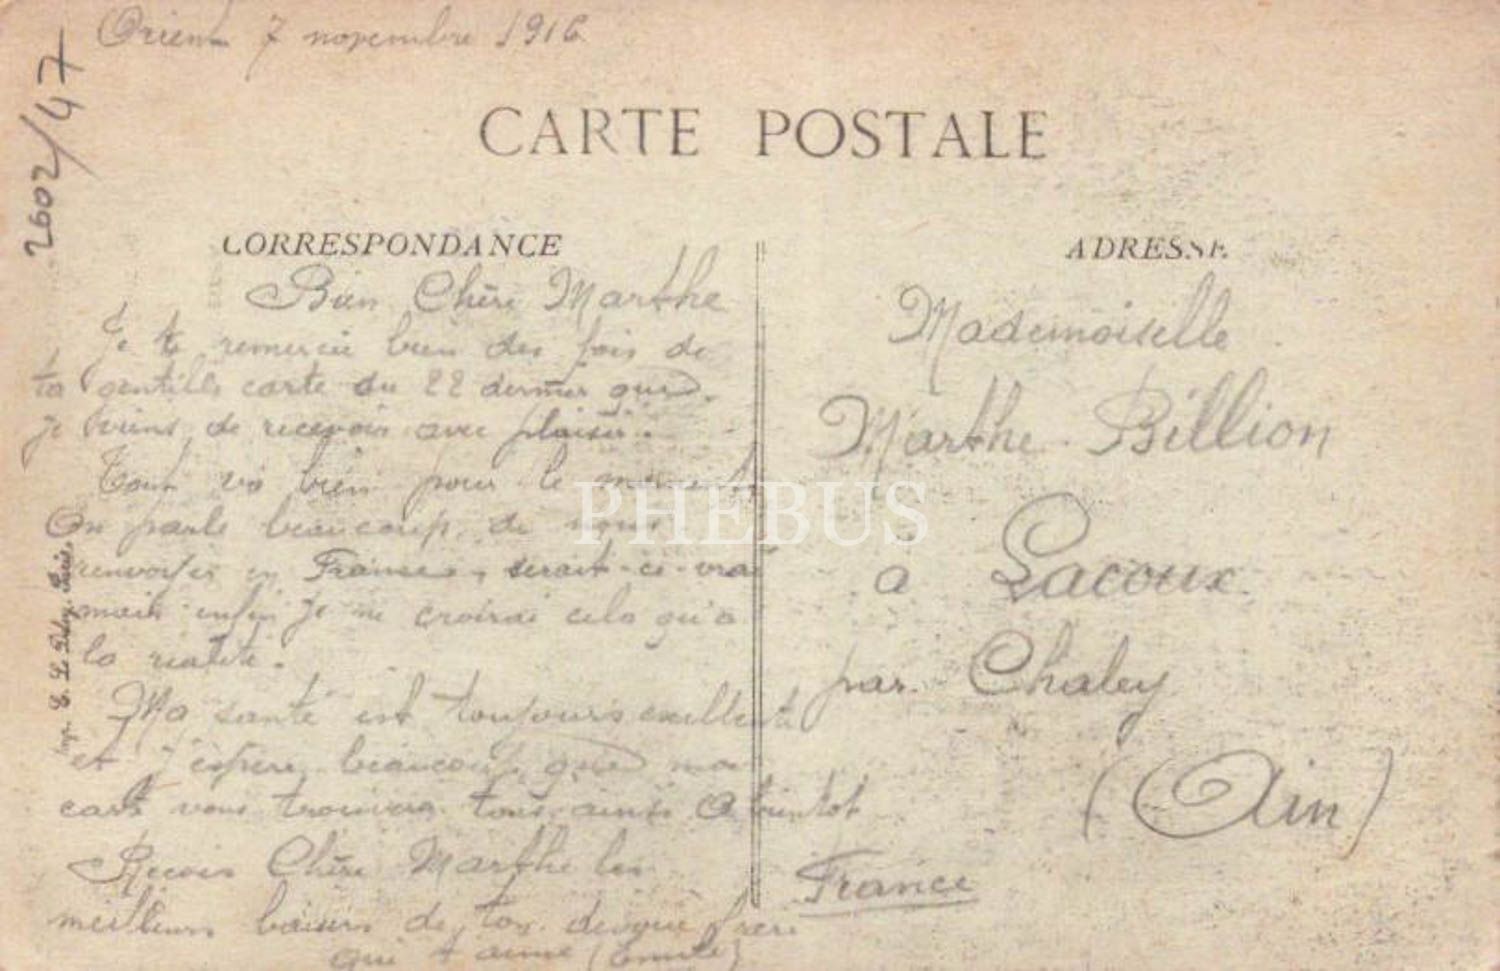 Orient 7 novembre 1916
2602/47
CARTE POSTALE
CORRESPONDANCE
ADRESSE
Bien Chère Marthe
Je te remercie bien des fois de
ta gentille carte du 22 dernier que
je viens de recevoir avec plaisir.
Tout va bien pour le moment
On parle beaucoup de nous
renvoyer en France, serait-ce-vrai
mais enfin je ne croirai cela qu'a
la réalité.
Ma santé est toujours excellente
et j'espère beaucoup que ma
carte vous trouvera tous ainsi A bientot
Reçois Chère Marthe les
meilleurs baisers de ton frère
qui t'aime (Emile)
Mademoiselle
Marthe Billion
a Lacoux
par Chaley
(Ain)
France
Imp. E. Le Deley, Paris.
PHEBUS